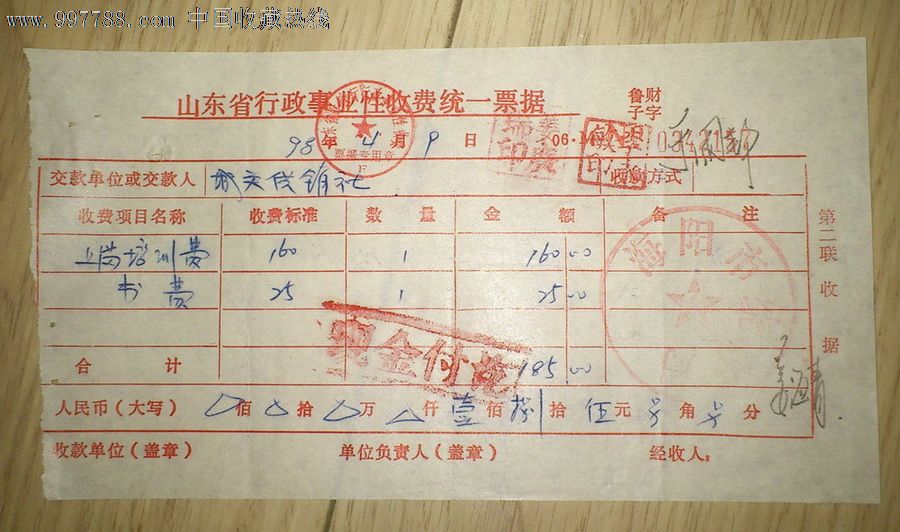 www.997788.com 中国收藏热线
山东省行政事业性收费统一票据
鲁财
子字
98年4月9日
06
票据专用章
交款单位或交款人 城关供销社
收款方式
收费项目名称 收费标准 数量 金额 备注
上岗培训费 160 1 160.00
书费 25 1 25.00
合计 185.00
现金付讫
海阳市
第二联收据
人民币(大写) 佰 拾 万 仟 壹佰 捌拾 伍元 角 分
收款单位(盖章) 单位负责人(盖章) 经收人: